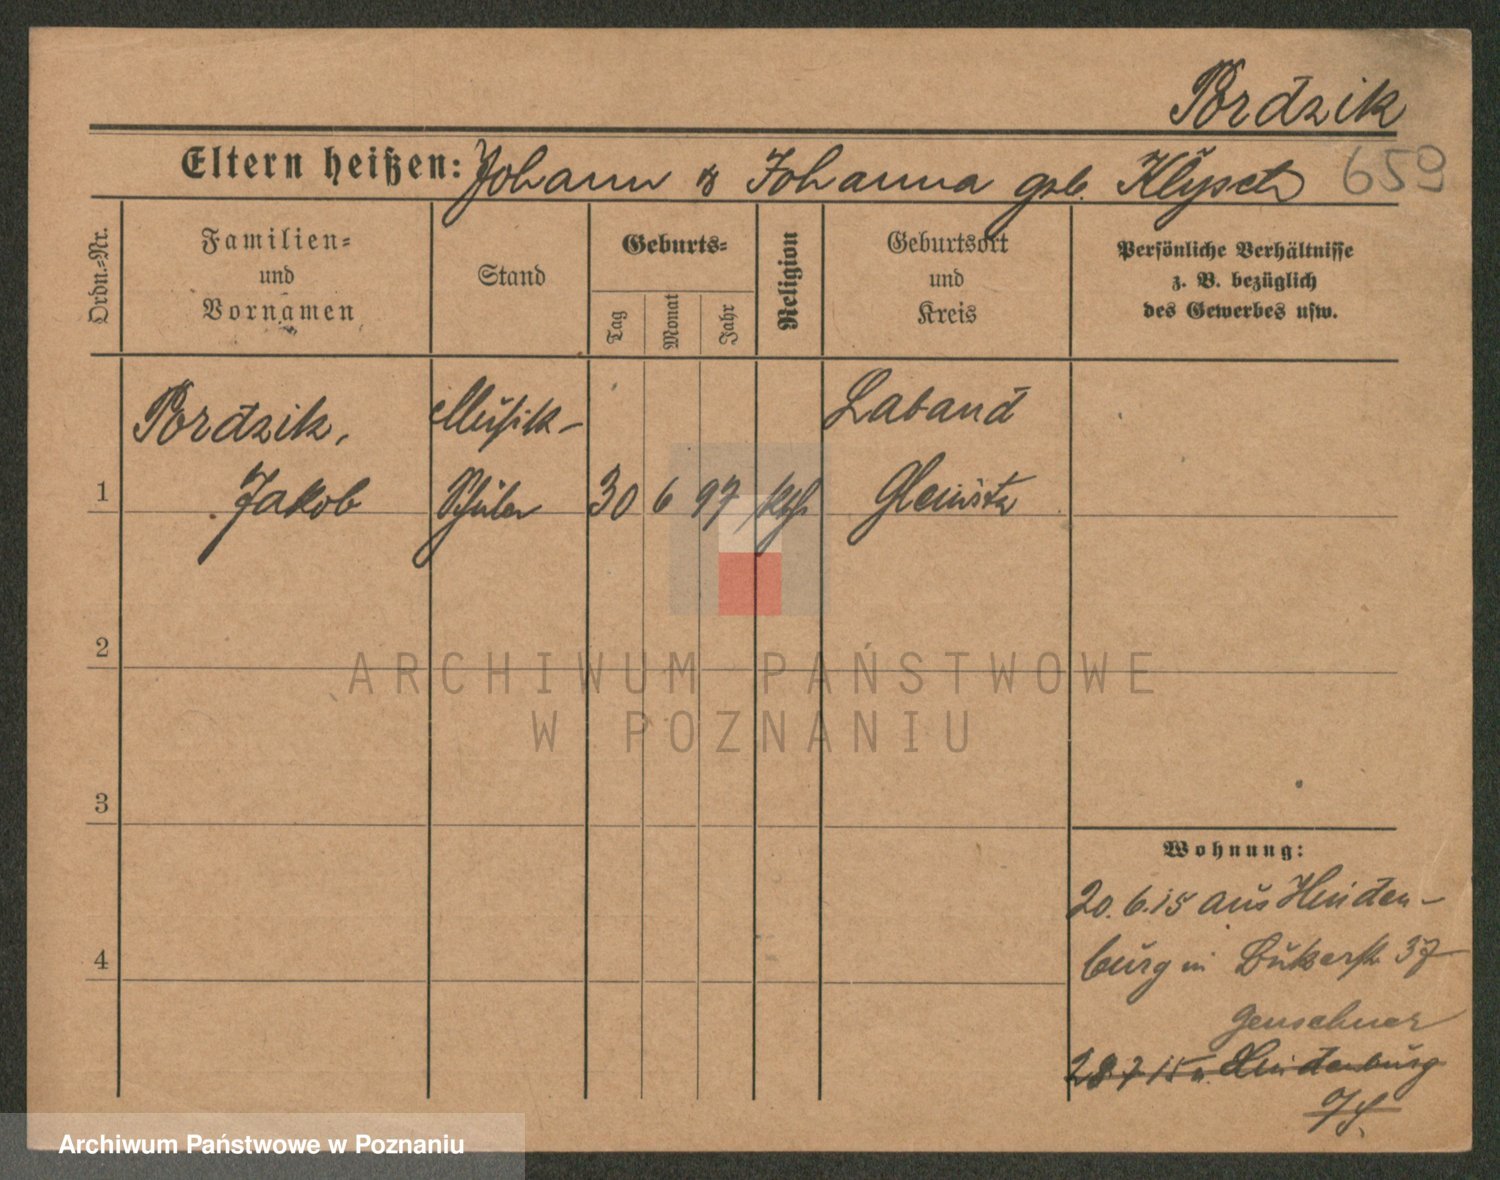 Pordzik
Eltern heißen: Johann & Johanna geb. Klysch 659
Ordn.=Nr.
Familien=
und
Vornamen
Stand
Geburts=
Tag
Monat
Jahr
Religion
Geburtsort
und
Kreis
Persönliche Verhältnisse
z. B. bezüglich
des Gewerbes usw.
Pordzik, Musik- Laband
1 Jakob Schüler 30 6 97 kth. Gleiwitz
2
ARCHIWUM PAŃSTWOWE
W POZNANIU
3
Wohnung:
20.6.15 aus Hinden-
4 burg in 37
28.7.15 n. Hindenburg
Archiwum Państwowe w Poznaniu